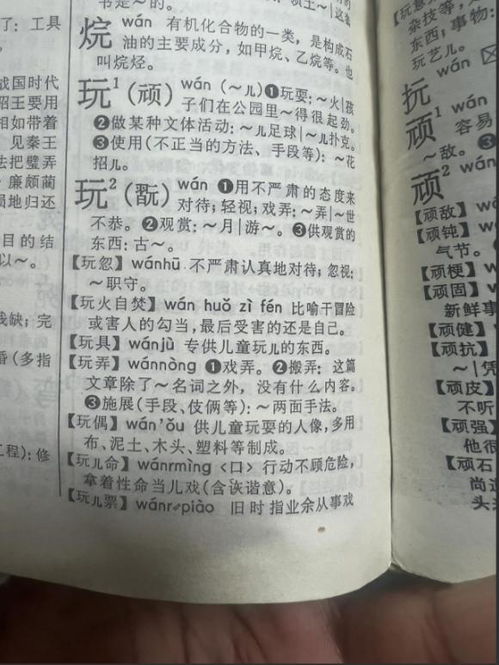 了；工具
战国时代
昭王要用
相如带着
见秦王
法把璧弄
廉颇蔺
损地归还
目的结
以～。
线缺；完
昏(多指
工程)：修
书是～的。
烷 wán 有机化合物的一类，是构成石
油的主要成分，如甲烷、乙烷等。也
叫烷烃。
玩¹(頑) wán (～儿)❶玩耍：～火|孩
子们在公园里～得很起劲。
❷做某种文体活动：～儿足球|～儿扑克。
❸使用(不正当的方法、手段等)：～花
招儿。
玩²(翫) wán ❶用不严肃的态度来
对待；轻视；戏弄：～弄|～世
不恭。❷观赏：～月|游～。❸供观赏的
东西：古～。
【玩忽】wánhū 不严肃认真地对待；忽视：
～职守。
【玩火自焚】wán huǒ zì fén 比喻干冒险
或害人的勾当，最后受害的还是自己。
【玩具】wánjù 专供儿童玩儿的东西。
【玩弄】wánnòng ❶戏弄。❷搬弄：这篇
文章除了～名词之外，没有什么内容。
❸施展(手段、伎俩等)：～两面手法。
【玩偶】wán'ǒu 供儿童玩耍的人像，多用
布、泥土、木头、塑料等制成。
【玩儿命】wánrmìng〈口〉行动不顾危险，
拿着性命当儿戏(含诙谐意)。
【玩儿票】wánrpiào 旧时指业余从事戏
【玩意
杂技等，
东西；事物：
玩艺儿。
抏 wán
顽¹ wán
容易
～敌。❸
顽² wán
【顽敌】w
【顽钝】wán
气节。
【顽梗】w
【顽固】wán
新鲜事
【顽健】w
【顽抗】wán
～|凭
【顽皮】
不听
【顽强】
他很
【顽石
尚
头